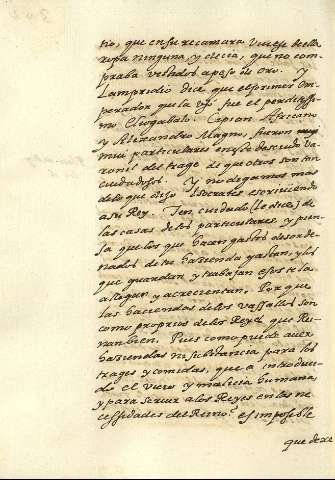 tio, que en su recamara viuiese della
ropa ninguna, y decia, que no com
praba vestidos apeso de oro. y
Lampridio dice que el primer Em
perador que la usó fue el perdidissi
mo Eliogabalo. Cepion Africano
y Alexandro Magno, fueron muy
muy particulares en este descuido va
ronil del trage de que otros son tan
cuidadosos. y no digamos mas
delo que dijo Isocrates escriuiendo
asu Rey. Ten cuidado (le dice) de
las casas delos particulares, y pien
sa que los que hacen gastos desorde
nados de tu hacienda gastan, y los
que guardan y trabajan esos te la
allegan, y acrecientan. Por que
las haciendas delos vassallos son
como proprias delos Reyes que Rei
nan bien. Pues como puede auer
haciendas ni substancia para los
trages y comidas, que a introduci
do el vicio y malicia humana,
y para seruir alos Reyes en las ne
cessidades del Reino. es imposible
que dexe